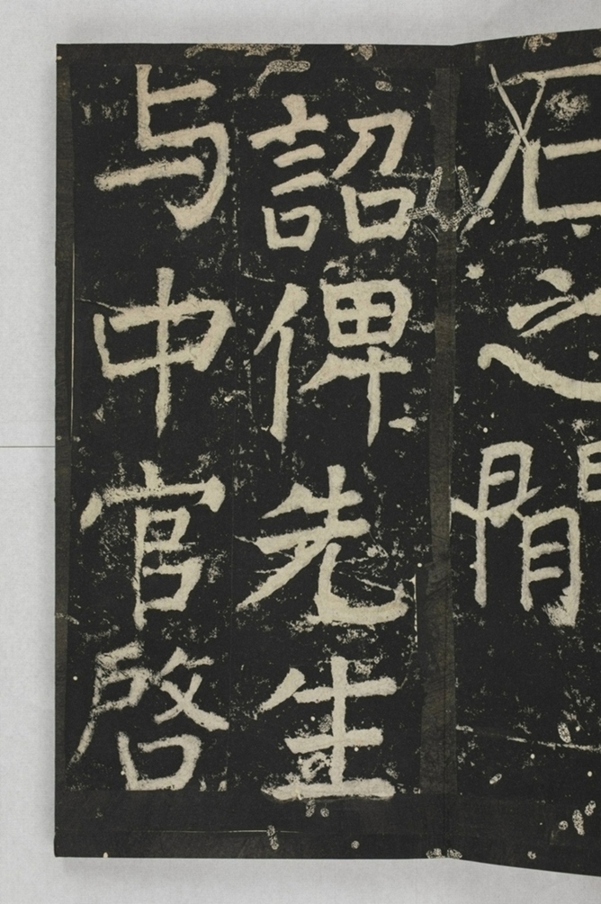 之閒
詔俾先生
与中官啓